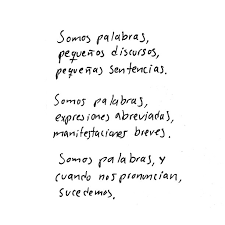 Somos palabras,
pequeños discursos,
pequeñas sentencias.
Somos palabras,
expresiones abreviadas,
manifestaciones breves.
Somos palabras, y
cuando nos pronuncian,
sucedemos.